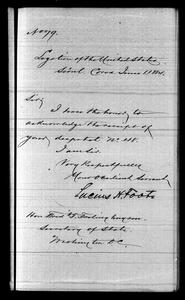 No 79.
Legation of the United States
Seoul, Corea June 1884.
Sir,
I have the honor to
acknowledge the receipt of
your despatch No
I am Sir.
Very Respectfully
Your Obedient Servant,
Lucius H. Foote
Hon. Fredk T. Frelinghuysen
Secretary of State.
Washington D.C.